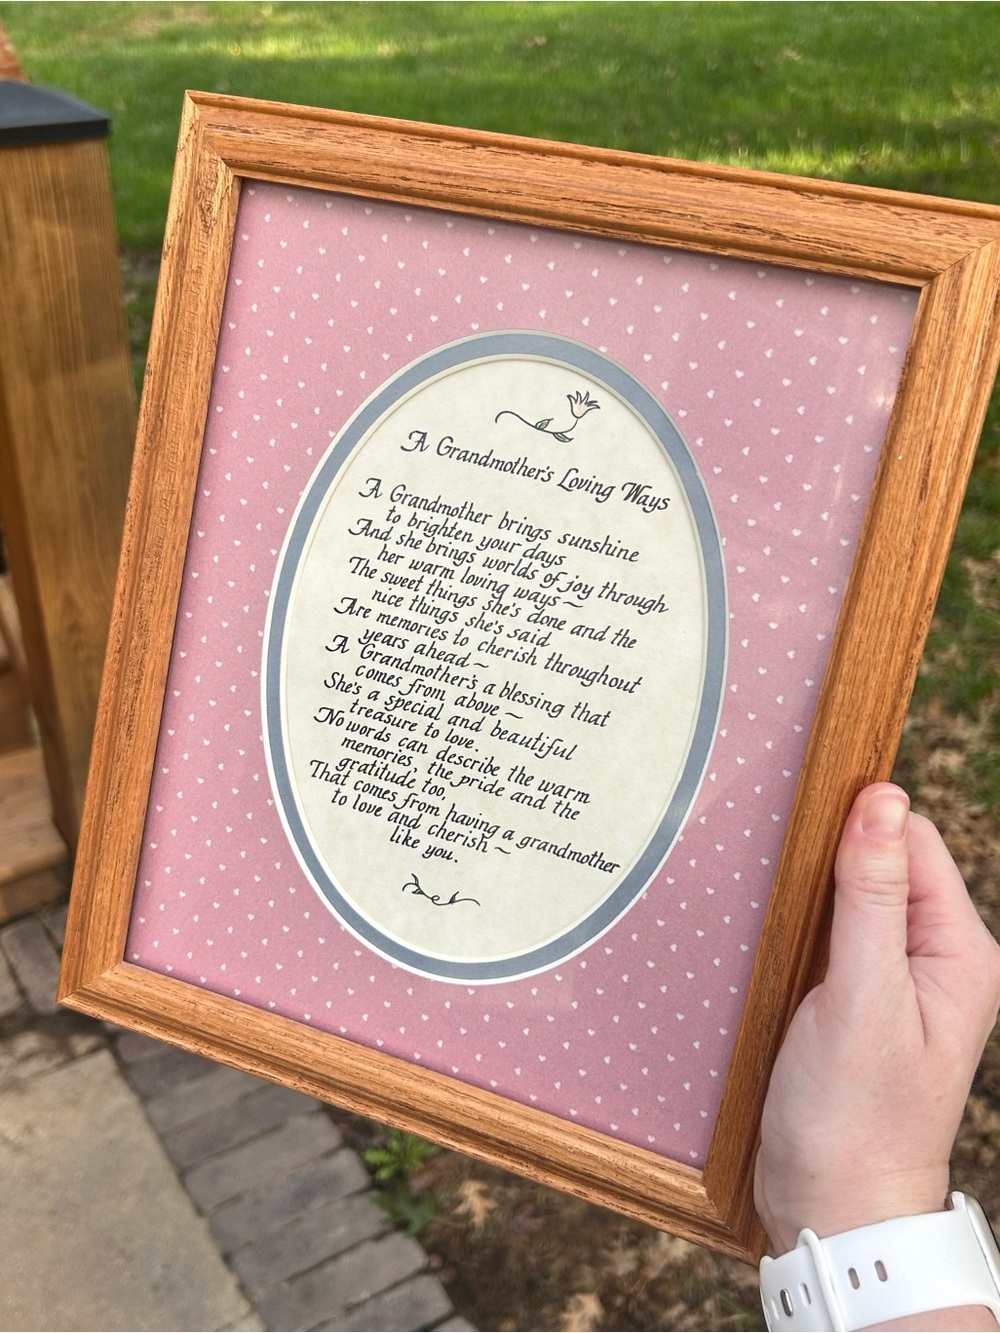 A Grandmother's Loving Ways
A Grandmother brings sunshine
to brighten your days
And she brings worlds of joy through
her warm loving ways~
The sweet things she's done and the
nice things she's said
Are memories to cherish throughout
years ahead~
A Grandmother's a blessing that
comes from above~
She's a special and beautiful
treasure to love.
No words can describe the warm
memories, the pride and the
gratitude too,
That comes from having a grandmother
to love and cherish~
like you.